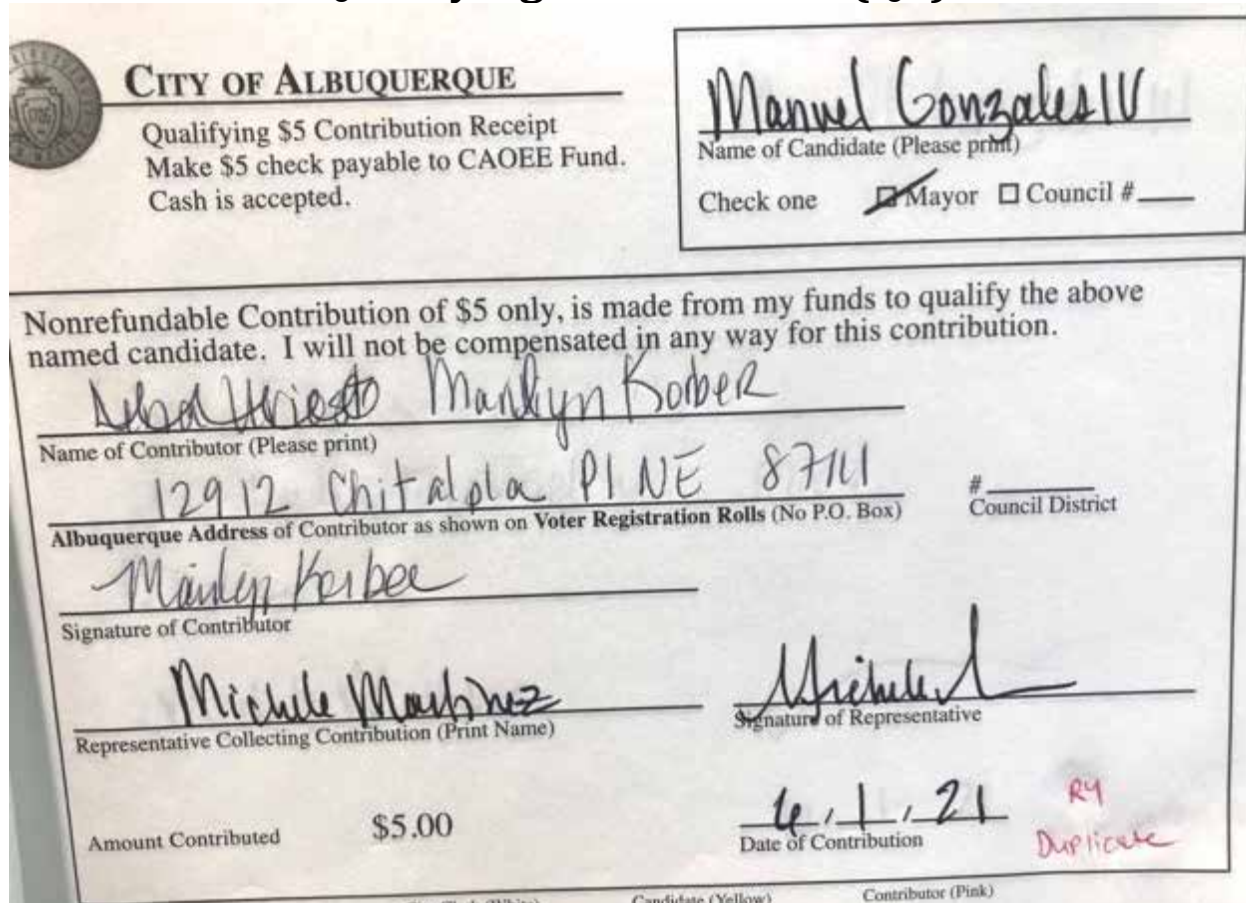 CITY OF ALBUQUERQUE
Qualifying $5 Contribution Receipt
Make $5 check payable to CAOEE Fund.
Cash is accepted.
Manuel Gonzales IV
Name of Candidate (Please print)
Check one Mayor Council #
Nonrefundable Contribution of $5 only, is made from my funds to qualify the above
named candidate. I will not be compensated in any way for this contribution.
Marilyn Korber
Name of Contributor (Please print)
12912 Chitalpa Pl NE 87111
#
Albuquerque Address of Contributor as shown on Voter Registration Rolls (No P.O. Box) Council District
Signature of Contributor
Michele Martinez
Representative Collecting Contribution (Print Name) Signature of Representative
Amount Contributed $5.00 6, 1, 21 R4
Date of Contribution Duplicate
Candidate (Yellow) Contributor (Pink)